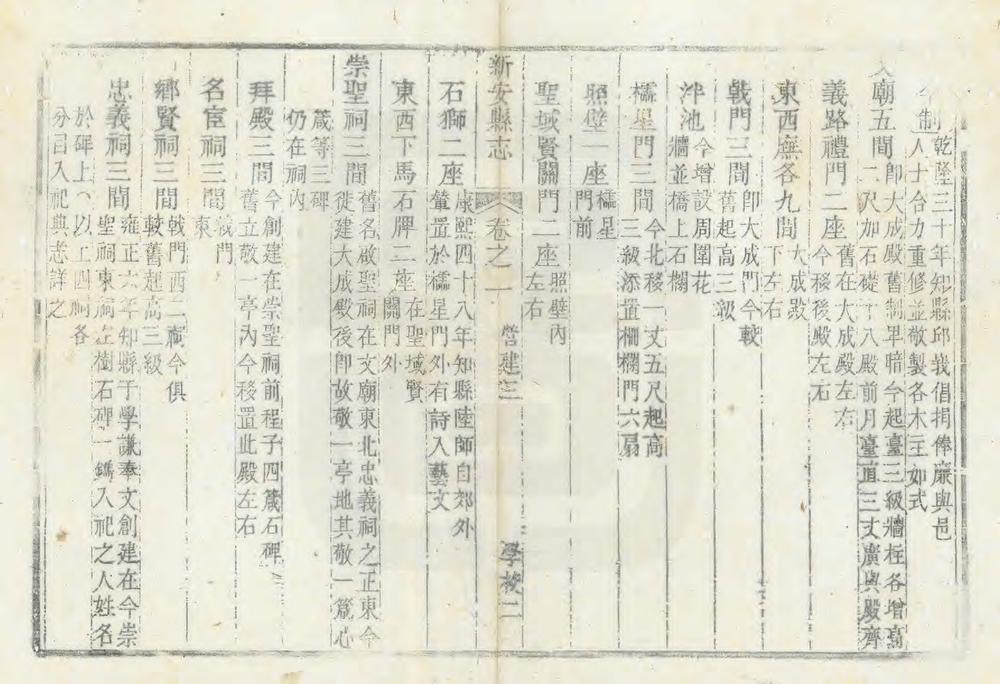 今制乾隆三十年知縣邱峩倡捐俸廉與邑
人士合力重修並敬製各木主如式
文廟五間卽大成殿舊制卑暗今起臺三級牆柱各增高
二尺加石磉十八殿前月臺直三丈廣與殿齊
義路禮門二座舊在大成殿左右
今移後殿左右
東西廡各九間大成殿
下左右
戟門三間卽大成門今較
舊起高三級
泮池今增設周圍花
牆並橋上石欄
櫺星門三間今北移一丈五尺起高
三級添置柵欄門六扇
照壁一座櫺星
門前
聖域賢關門二座照壁內
左右
新安縣志 卷之一 營建三 學校二
石獅二座康熙四十八年知縣陸師自郊外
輦置於櫺星門外有詩入藝文
東西下馬石牌二座在聖域賢
關門外
崇聖祠三間舊名啟聖祠在文廟東北忠義祠之正東今
徙建大成殿後卽故敬一亭地其敬一箴心
箴等三碑
仍在祠內
拜殿三間今創建在崇聖祠前程子四箴石碑
舊立敬一亭內今移置此殿左右
名宦祠三間戟門
東
鄉賢祠三間戟門西二祠今俱
較舊起高三級
忠義祠三間雍正六年知縣于學謙奉文創建在今崇
聖祠東祠左樹石碑一鐫入祀之人姓名
於碑上以上四祠各
分曰入祀典志詳之